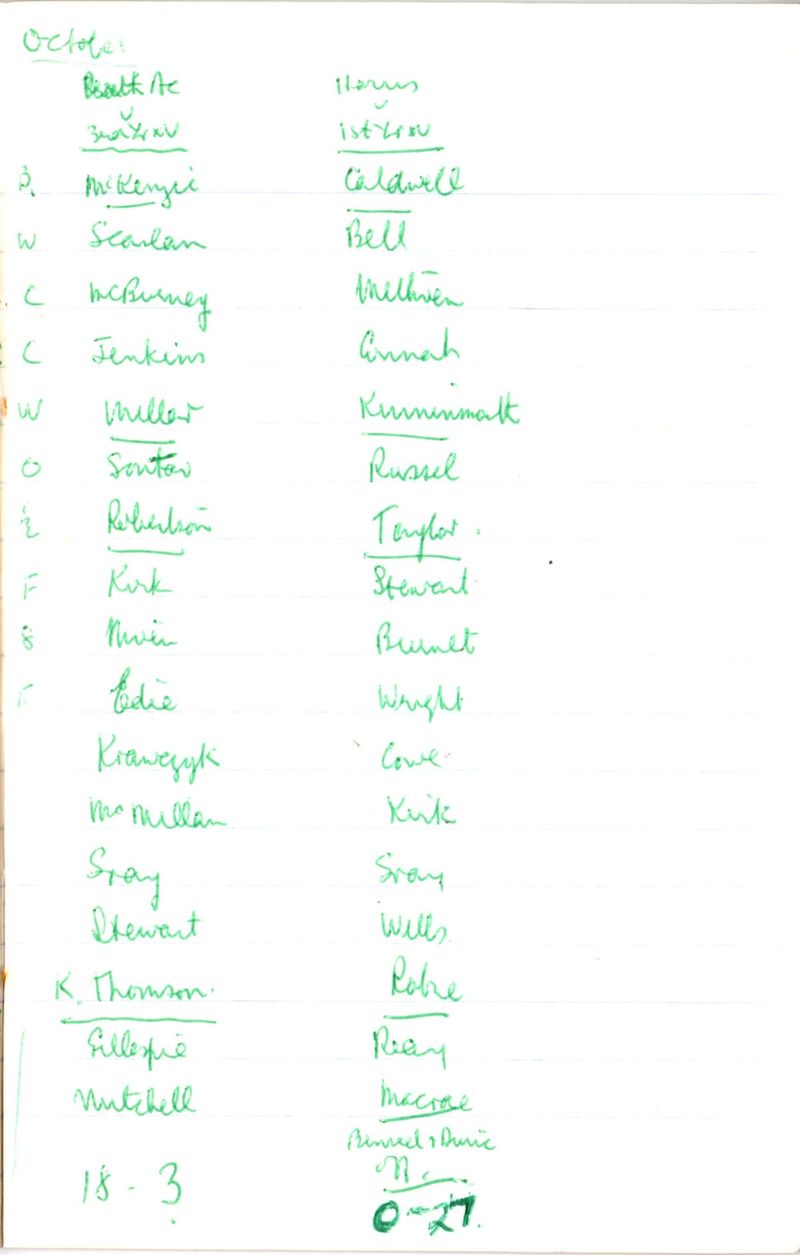 October
Beath Ac Harris
v v
2nd Yr XV 1st Yr XV
B. McKenzie Caldwell
W Scanlan Bell
C McBurney Methven
C Jenkins Annah
W Millar Kinninmonth
O Soutar Russel
½ Robertson Taylor.
F Kirk Stewart
8 Niven Burnet
F Edie Wright
Krawczyk Cowe
McMillan Kirk
Gray Gray
Stewart Wills
K. Thomson. Robie
Gillespie Reay
Mitchell Macrae
18 - 3
0-27.